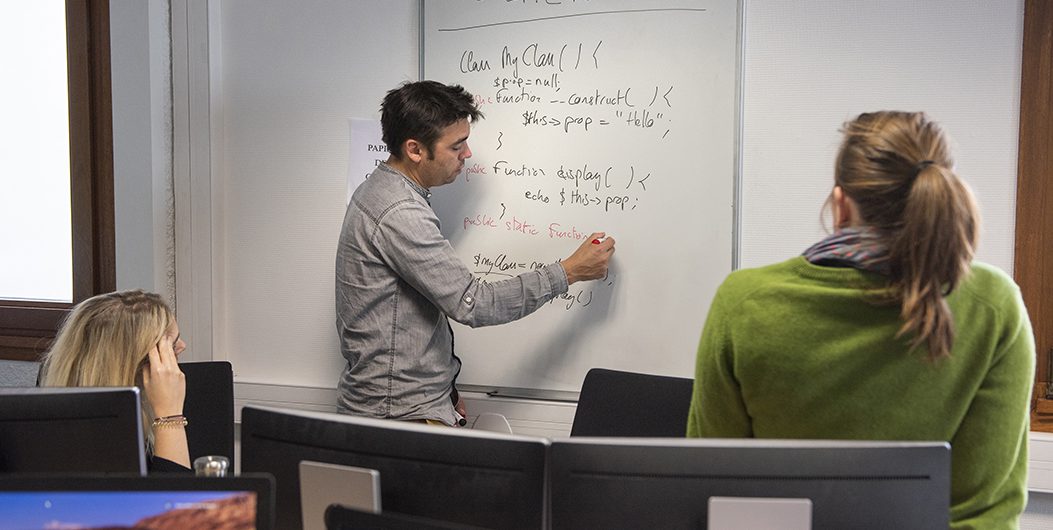 Class MyClass() {
$prop=null;
public function __construct( ) {
$this->prop = "Hello";
}
public function display( ) {
echo $this->prop;
}
public static function
$myClass=
PAPI